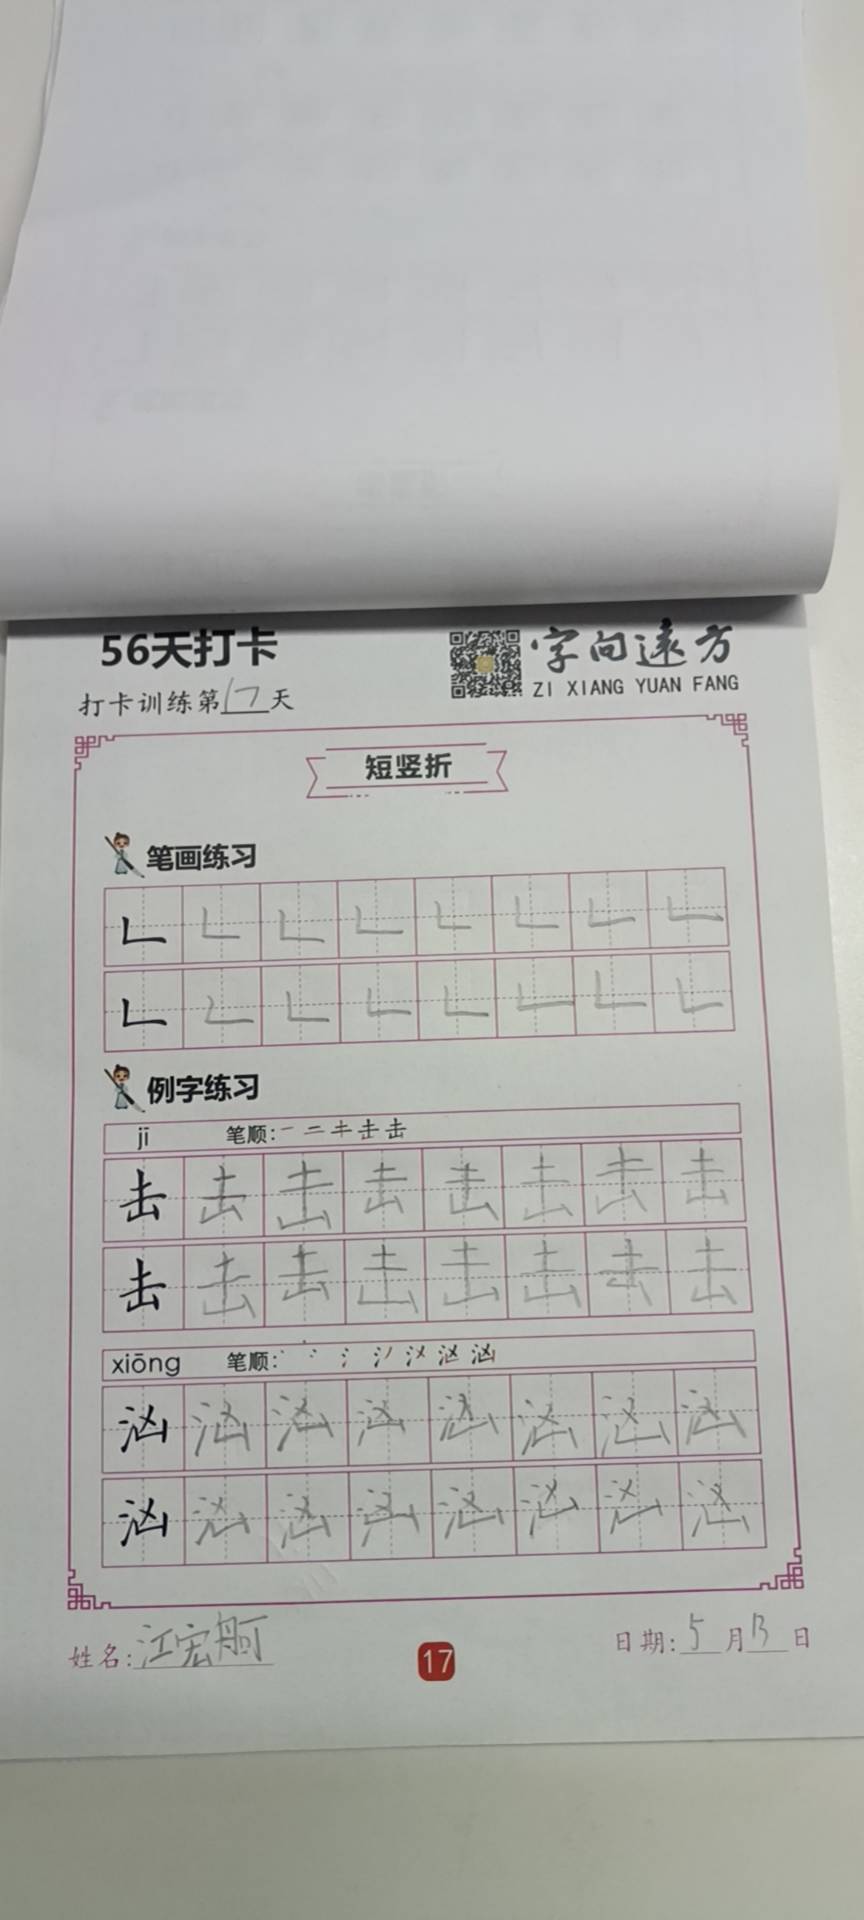 56天打卡
字向远方
ZI XIANG YUAN FANG
打卡训练第17天
短竖折
笔画练习
𠃊 𠃊 𠃊 𠃊 𠃊 𠃊 𠃊 𠃊
𠃊 𠃊 𠃊 𠃊 𠃊 𠃊 𠃊 𠃊
例字练习
jī 笔顺: 一 二 キ 击 击
击 击 击 击 击 击 击 击
击 击 击 击 击 击 击 击
xiōng 笔顺:
汹 汹 汹 汹 汹 汹 汹 汹
汹 汹 汹 汹 汹 汹 汹 汹
姓名:江宏舸
17
日期:5月13日